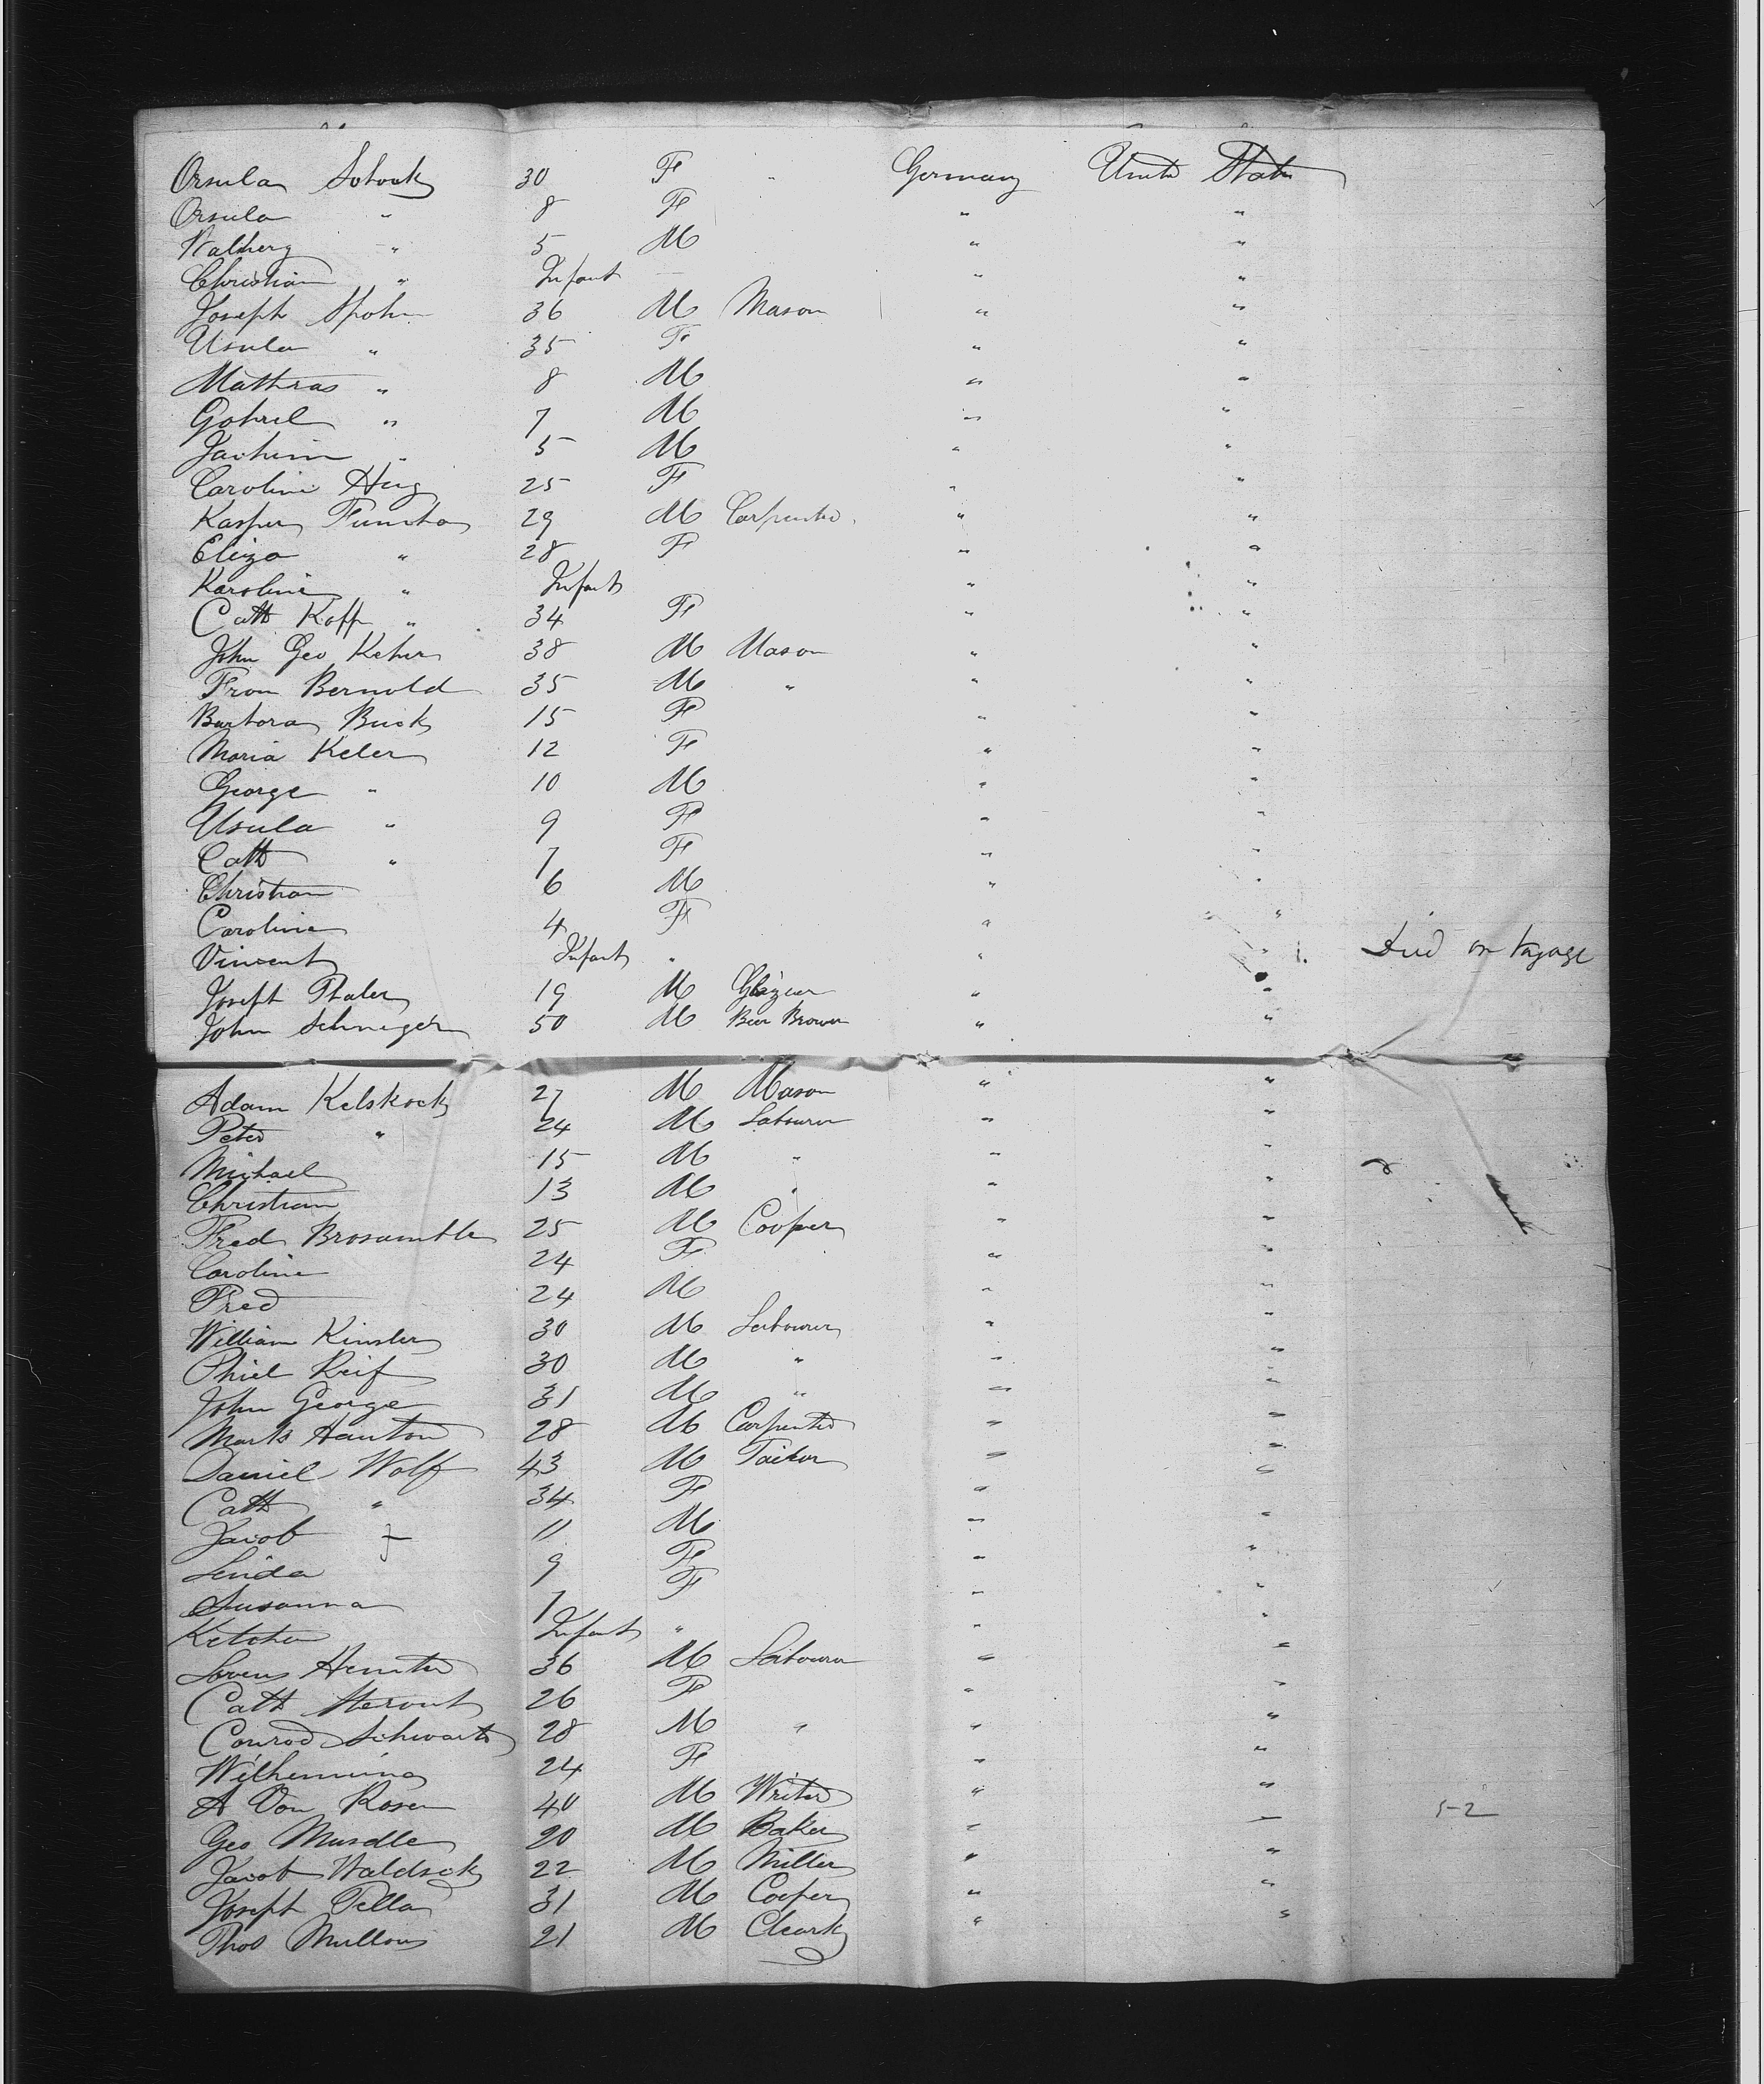 Orsula Schock 30 F " Germany United States
Orsula " 8 F " "
Walberg " 5 M " "
Christian " Infant " "
Joseph Spohn 36 M Mason " "
Usula " 35 F " "
Mathias " 8 M " "
Gabriel " 7 M " "
Jachim " 5 M " "
Caroline Hug 25 F " "
Kasper 29 M Carpenter " "
Eliza " 28 F " "
Karoline " Infant " "
Cath Kopp " 34 F " "
John Geo Keher 38 M Mason " "
Fran Bernold 35 M " " "
Barbora Buck 15 F " "
Maria Keler 12 F " "
George " 10 M " "
Usula " 9 F " "
Cath " 7 F " "
Christian 6 M " "
Caroline 4 F " "
Vincent Infant " " " Died on Voyage
Joseph Thaler 19 M Glazier " "
John Schneger 50 M Beer Brower " "
Adam Kelskock 27 M Mason " "
Peter " 24 M Labourer " "
Michael 15 M " " "
Christian 13 M " " "
Fred Brosamble 25 M Cooper " "
Caroline 24 F " "
Fred 24 M " "
William Kinsler 30 M Labourer " "
Phiel Reif 30 M " " "
John George 31 M " " "
Marks Hauton 28 M Carpenter " "
Daniel Wolf 43 M Tailor " "
Cath " 34 F " "
Jacob 11 M " "
Linda 9 F " "
Susanna 7 F " "
Ketchen Infant " " "
Lorens 36 M Labourer " "
Cath 26 F " "
Conrad Schwarts 28 M " " "
Wilhemina 24 F " "
A Von Rosen 40 M Writer " "
5-2
Geo Musdle 20 M Baker " "
Jacob Waldsck 22 M Miller " "
Joseph Pella 31 M Cooper " "
Thos Mullows 21 M Cleark " "